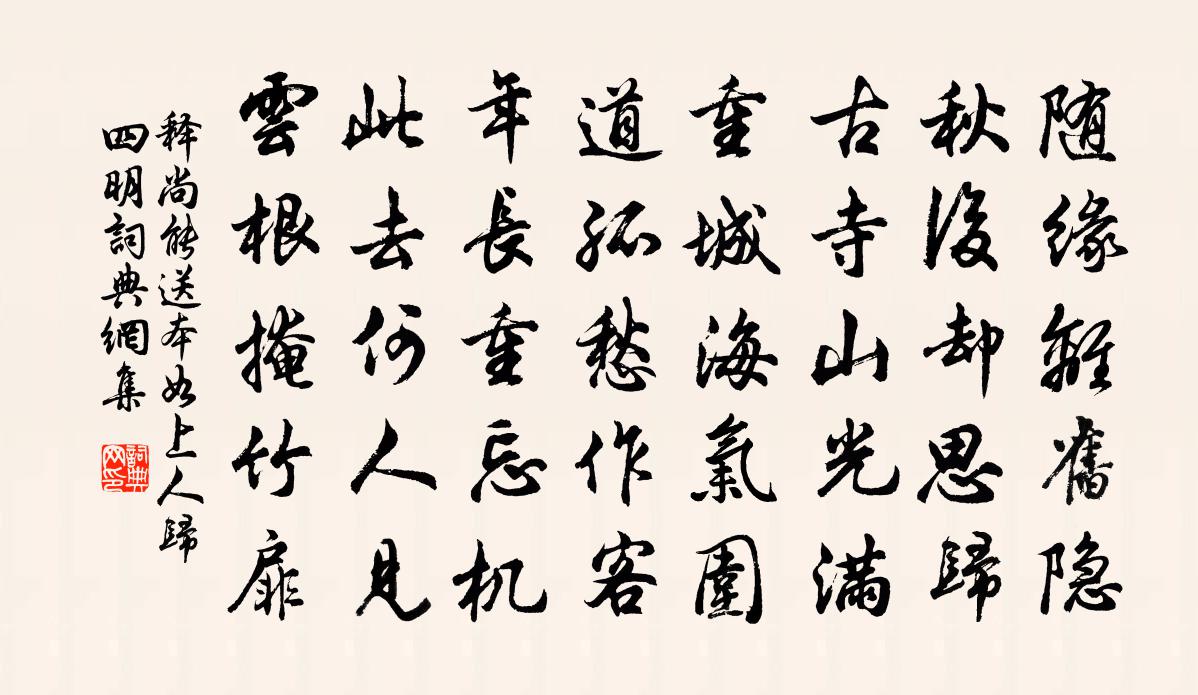 随缘離舊隐
秋後却思歸
古寺山光滿
重城海氣圍
道孤愁作客
年長重忘机
此去何人見
雲根掩竹扉
释尚能送本如上人歸
四明詞典網集
詞典网印